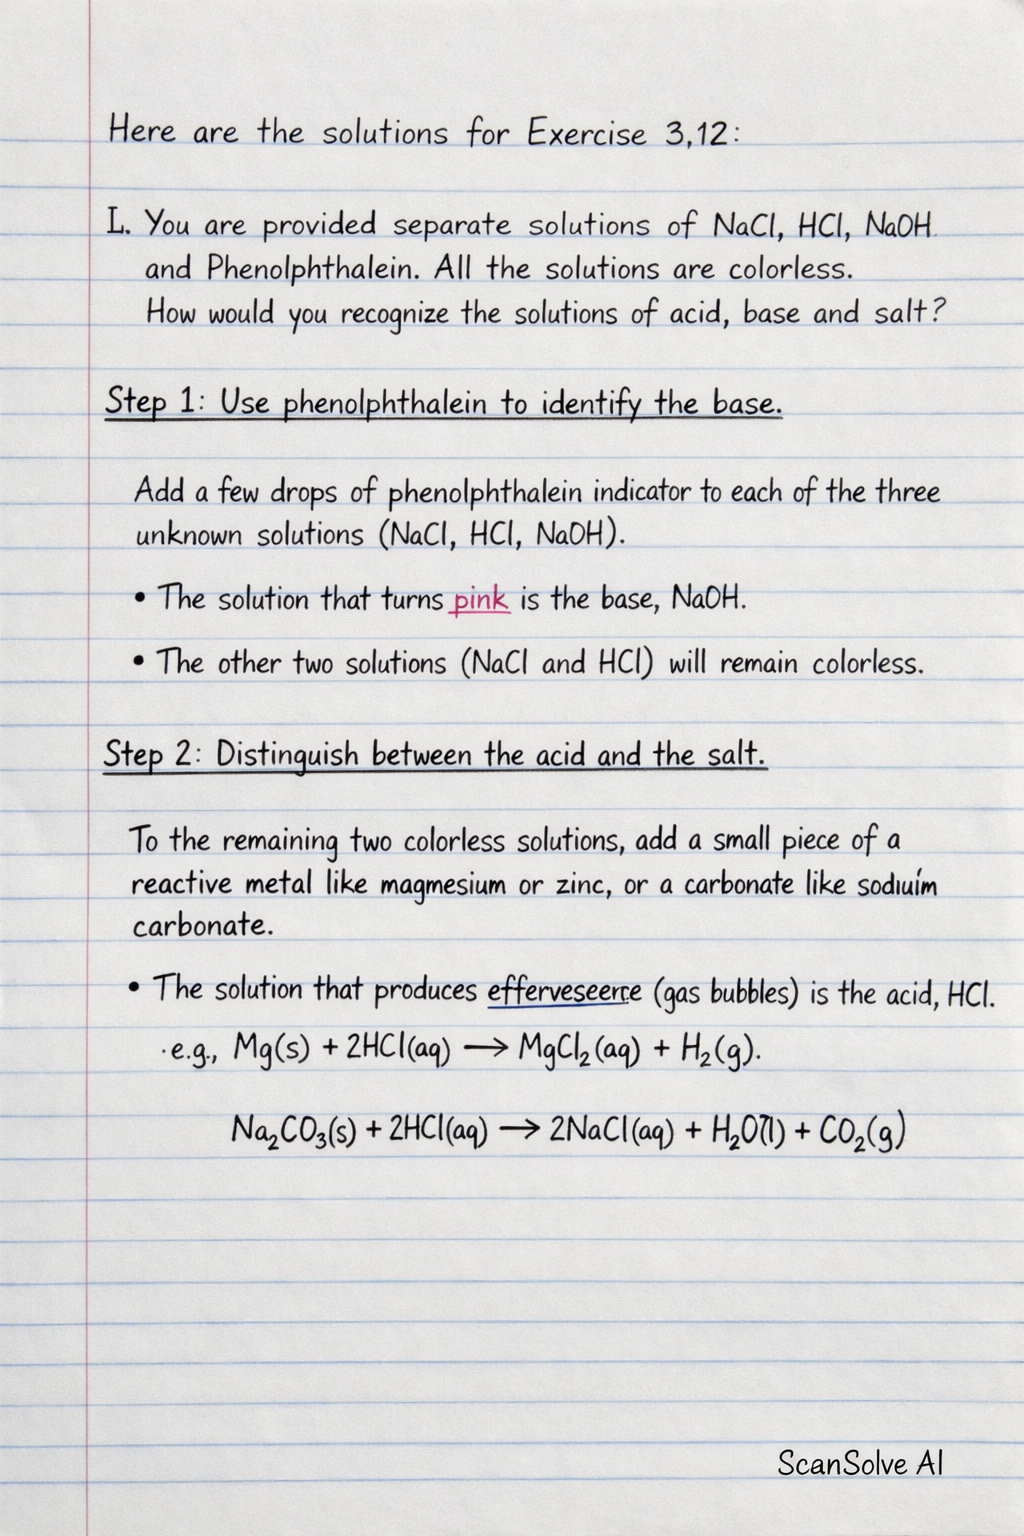 Here are the solutions for Exercise 3,12:
I. You are provided separate solutions of NaCl, HCl, NaOH
and Phenolphthalein. All the solutions are colorless.
How would you recognize the solutions of acid, base and salt?
Step 1: Use phenolphthalein to identify the base.
Add a few drops of phenolphthalein indicator to each of the three
unknown solutions (NaCl, HCl, NaOH).
• The solution that turns pink is the base, NaOH.
• The other two solutions (NaCl and HCl) will remain colorless.
Step 2: Distinguish between the acid and the salt.
To the remaining two colorless solutions, add a small piece of a
reactive metal like magmesium or zinc, or a carbonate like sodiuim
carbonate.
• The solution that produces efferveseerce (gas bubbles) is the acid, HCl.
·e.g., Mg(s) + 2HCl(aq) → MgCl₂(aq) + H₂(g).
Na₂CO₃(s) + 2HCl(aq) → 2NaCl(aq) + H₂O(l) + CO₂(g)
ScanSolve AI